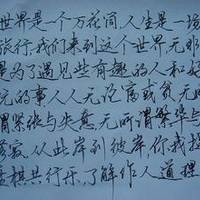 世界是一个万花筒,人生是一场
旅行,我们来到这个世界无非
是为了遇见些有趣的人和好
玩的事人人无论富或贫无
谓繁华与失意无所谓繁华与
寂寥从此岸到彼岸,你我
共行乐了解作人道理